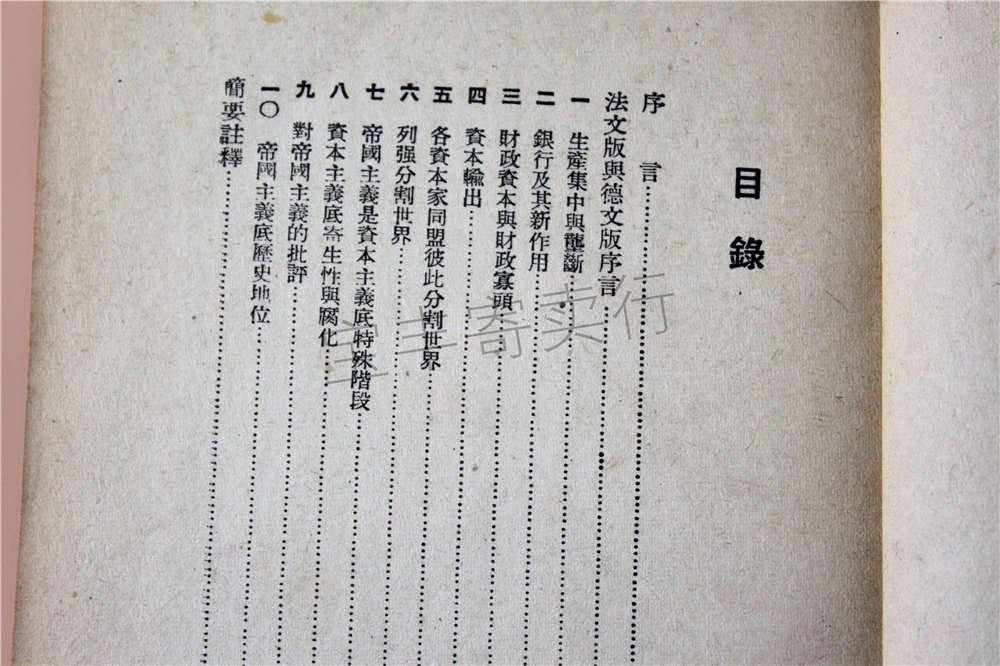 目錄
序言
法文版與德文版序言
一 生產集中與壟斷
二 銀行及其新作用
三 財政資本與財政寡頭
四 資本輸出
五 各資本家同盟彼此分割世界
六 列强分割世界
七 帝國主義是資本主義底特殊階段
八 資本主義底寄生性與腐化
九 對帝國主義的批評
一〇 帝國主義底歷史地位
簡要註釋
寄卖行